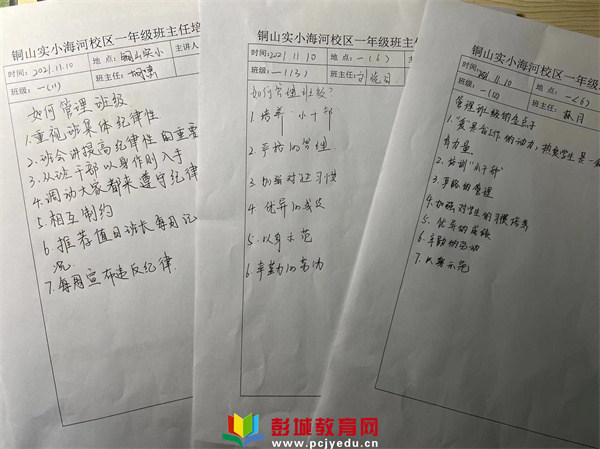 铜山实小海河校区一年级班主任培
时间:2021.11.10
地点:铜山实小
主讲人
班级:一(11)
班主任:
如何管理班级
1.重视班集体纪律性
2.班会讲提高纪律性的重要
3.从班干部以身作则入手
4.调动大家都来遵守纪律
5.相互制约
6.推荐值日班长每周记
况.
7.每周宣布违反纪律.
铜山实小海河校区一年级班主任
时间:2021.11.10
地点:一(6)
班级:一(13)
班主任:
如何管理班级?
1 培养"小干部
2.平均的管理
3 加强对过习惯
4 优异的成绩
5.以身示范
6.辛勤的劳动
铜山实小海河校区一年级
时间:2021.11.10
地点:一(6)
班级:一(10)
班主任:
管理班级的金点子
1."爱"是工作的动力,热爱学生是一
有力量
2.培训"小干部"
3.严格的管理
4.加强对学生的习惯培养
5.优异的成绩
6.辛勤的劳动
7.以身示范
彭城教育网
www.pcjyedu.cn